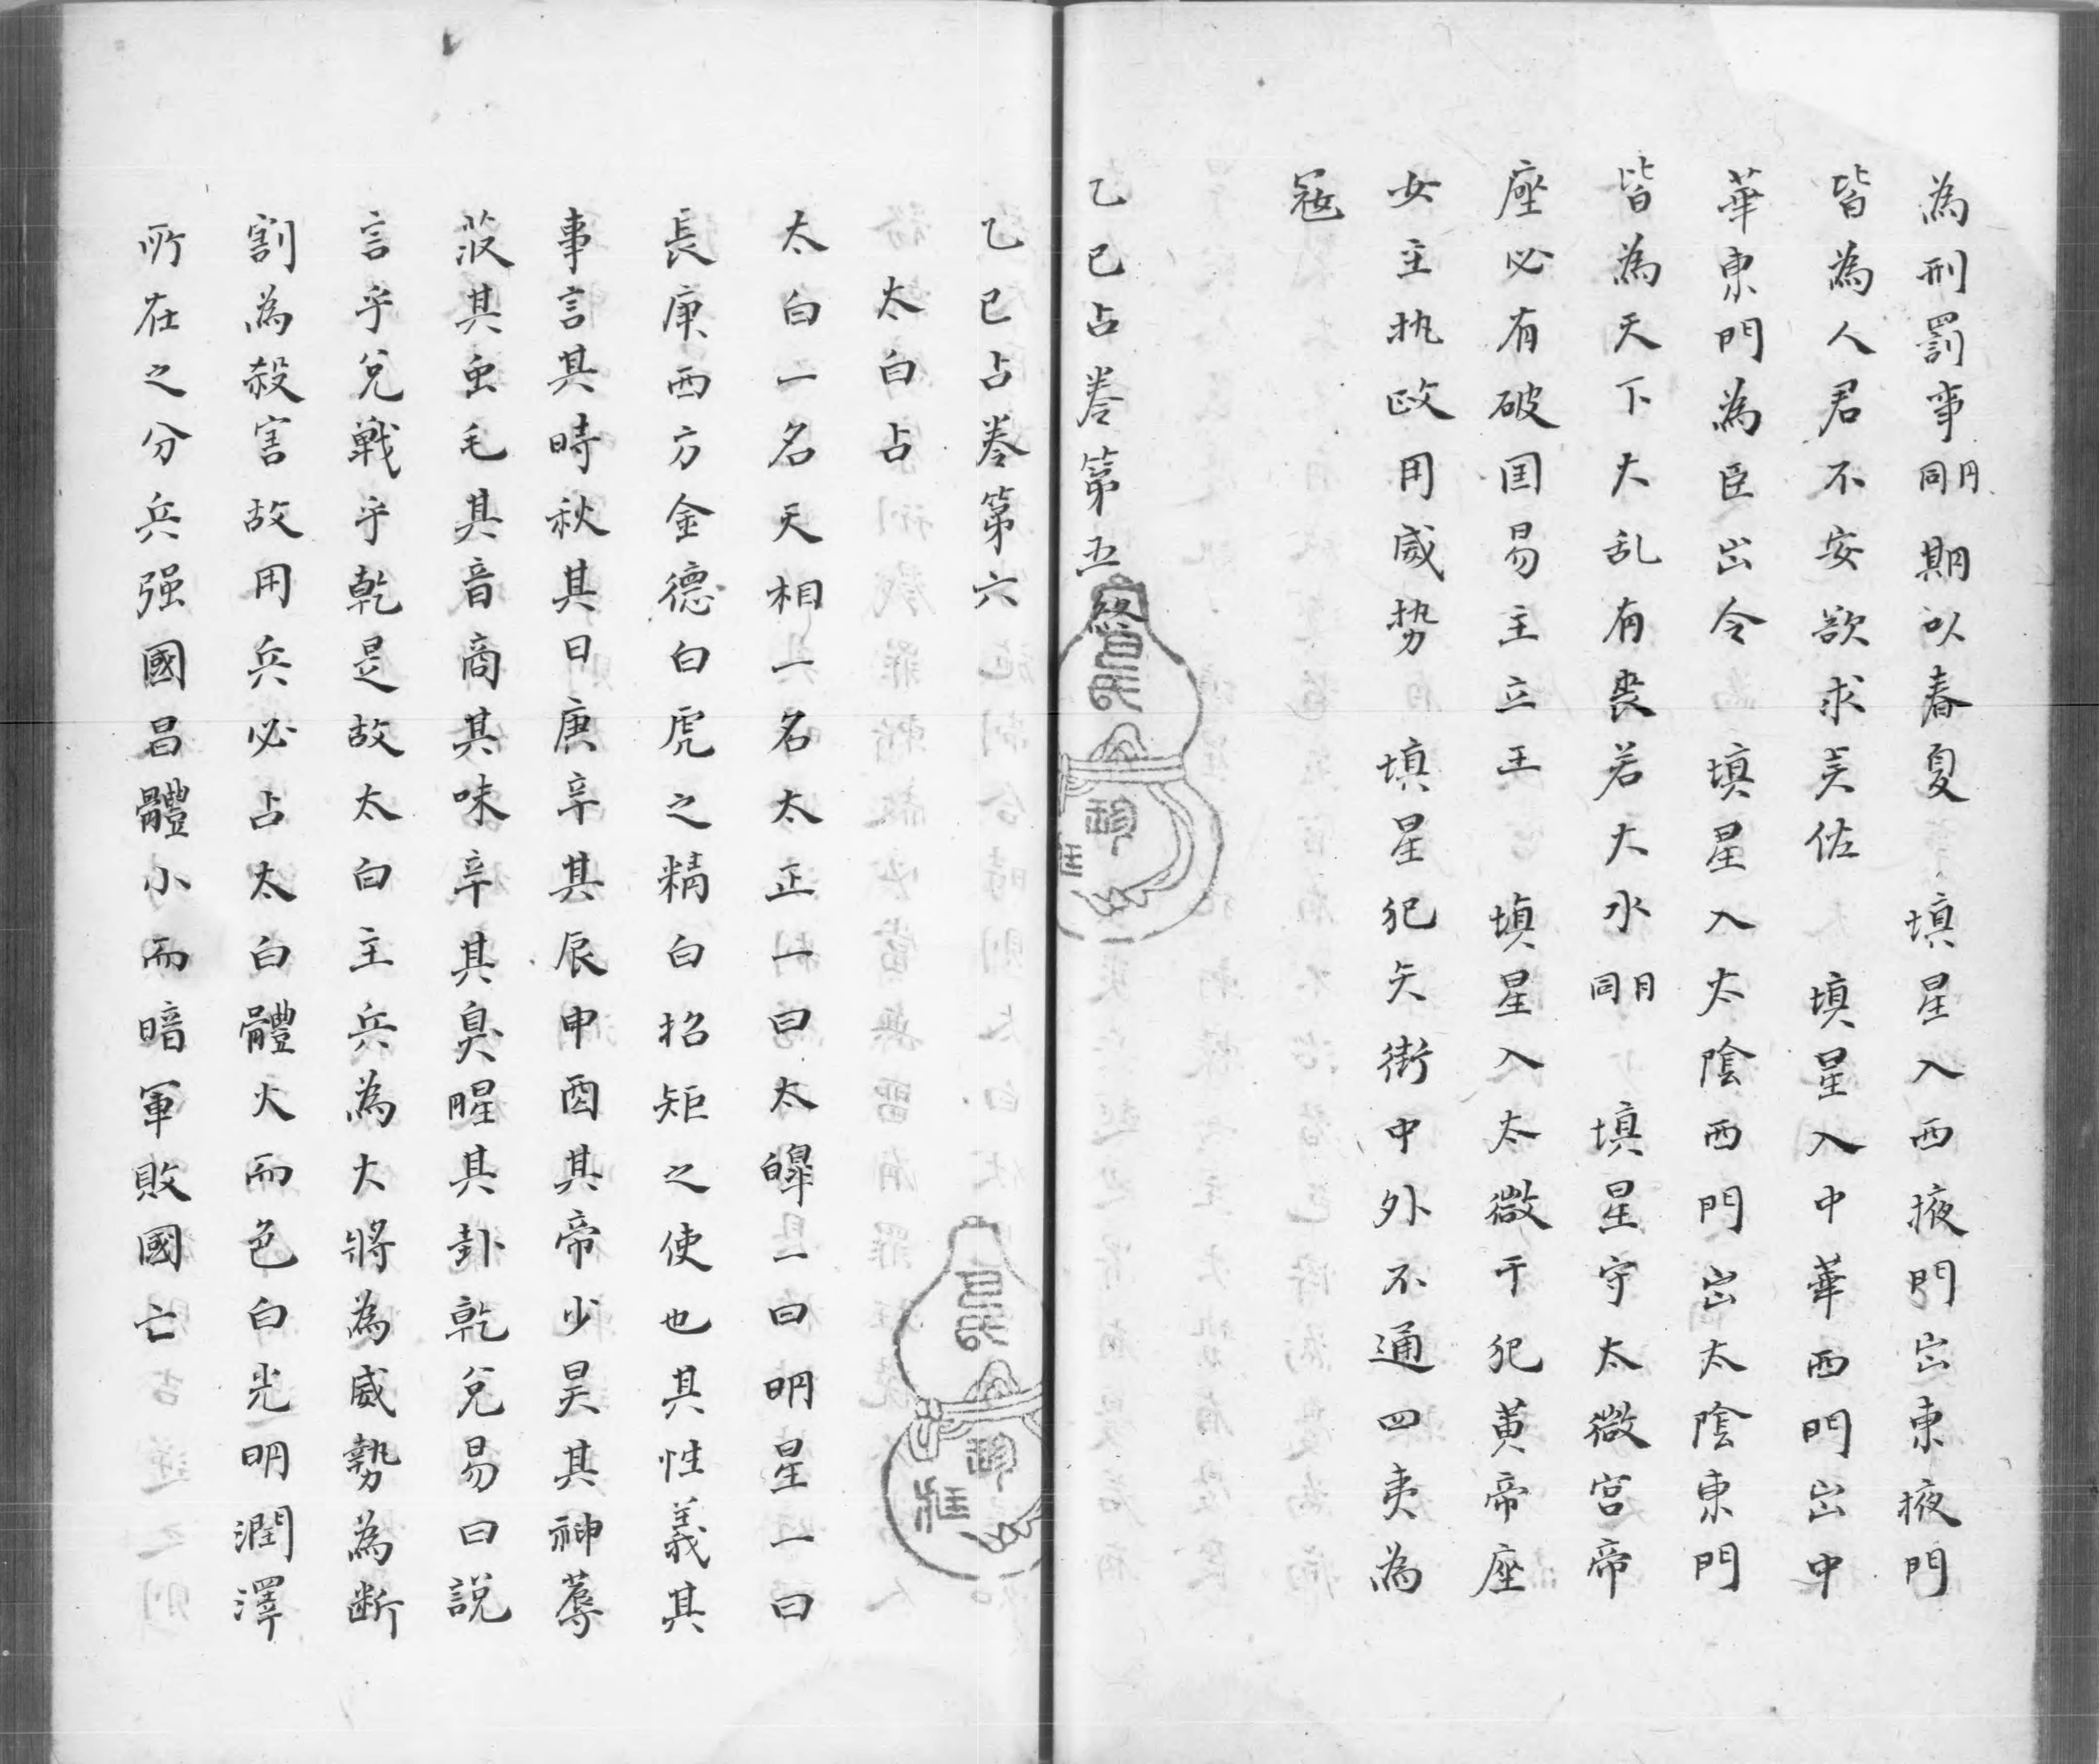 為刑罰事同月期以春夏　填星入西掖門出東掖門
皆為人君不安欲求美佐　填星入中華西門出中
華東門為臣出令　填星入太陰西門出太陰東門
皆為天下大乱有丧若大水同月　填星守太微宫帝
座必有破国易主立王　填星入太微干犯黄帝座
女主执政用威势　填星犯天街中外不通四夷為
寇
乙巳占巻第五終
乙巳占巻第六
太白占
太白一名天相一名太正一曰太皞一曰明星一曰
長庚西方金德白虎之精白招矩之使也其性義其
事言其時秋其日庚辛其辰申酉其帝少昊其神蓐
收其虫毛其音商其味辛其臭腥其卦乾兌易曰説
言乎兌戰乎乾是故太白主兵為大將為威勢為断
割為殺害故用兵必占太白體大而色白光明潤澤
所在之分兵强國昌體小而暗軍敗國亡